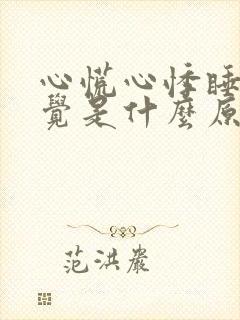 心慌心悸睡
覺是什麼原
范洪巖